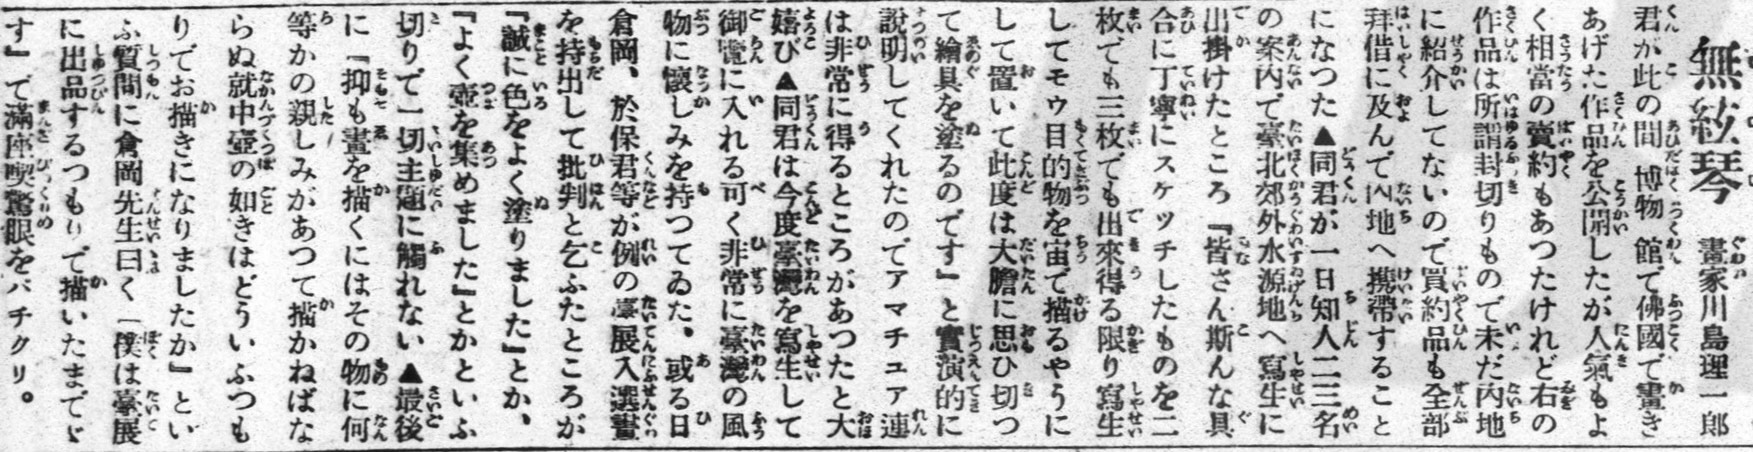 無絃琴 畫家川島理一郎
君が此の間 博物館で佛國で畫き
あげた作品を公開したが人氣もよ
く相當の賣約もあつたけれど右の
作品は所謂封切りもので未だ内地
に紹介してないので買約品も全部
拜借に及んで内地へ攜帶すること
になつた▲同君が一日知人二三名
の案内で臺北郊外水源地へ寫生に
出掛けたところ『皆さん斯んな具
合に丁寧にスケッチしたものを二
枚でも三枚でも出來得る限り寫生
してモウ目的物を宙で描るやうに
して置いて此度は大膽に思ひ切つ
て繪具を塗るのです』と實演的に
說明してくれたのでアマチュア連
は非常に得るところがあつたと大
嬉び▲同君は今度臺灣を寫生して
御覽に入れる可く非常に臺灣の風
物に懷しみを持つてゐた。或る日
倉岡、於保君等が例の臺展入選畫
を持出して批判と乞ふたところが
『誠に色をよく塗りました』とか、
『よく壺を集めました』とかといふ
切りで一切主題に觸れない▲最後
に「抑も畫を描くにはその物に何
等かの親しみがあつて描かねばな
らぬ就中壺の如きはどういふつも
りでお描きになりましたか』とい
ふ質問に倉岡先生曰く「僕は臺展
に出品するつもりで描いたまでゞ
す』で滿座喫驚眼をパチクリ。